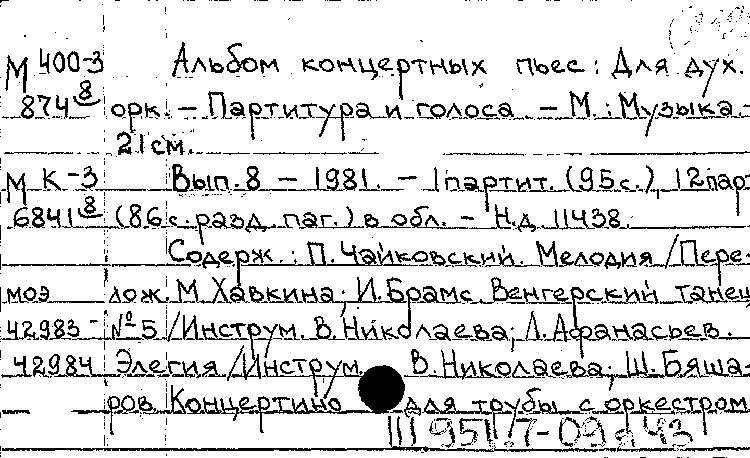 М 400-3 Альбом концертных пьес: Для дух.
874 8 орк. – Партитура и голоса. – М.: Музыка.
21 см.
М К-3 Вып. 8 – 1981. – 1 партит. (95 с.), 12 парт
6841 8 (86 с. разд. паг.) в обл. – Н.д. 11438.
Содерж.: П. Чайковский. Мелодия /Пере-
моэ лож. М. Хавкина; И. Брамс. Венгерский танец
42983- №5 /Инструм. В. Николаева; Л. Афанасьев.
42984 Элегия /Инструм. В. Николаева; Ш. Бяша-
ров. Концертино для трубы с оркестром